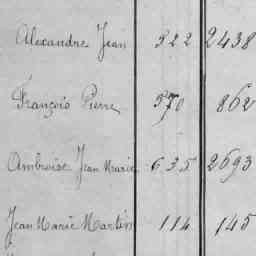 Alexandre Jean 522 2438
François Pierre 570 862
Ambroise Jean Marie 635 2693
Jean Marie Martin 114 145